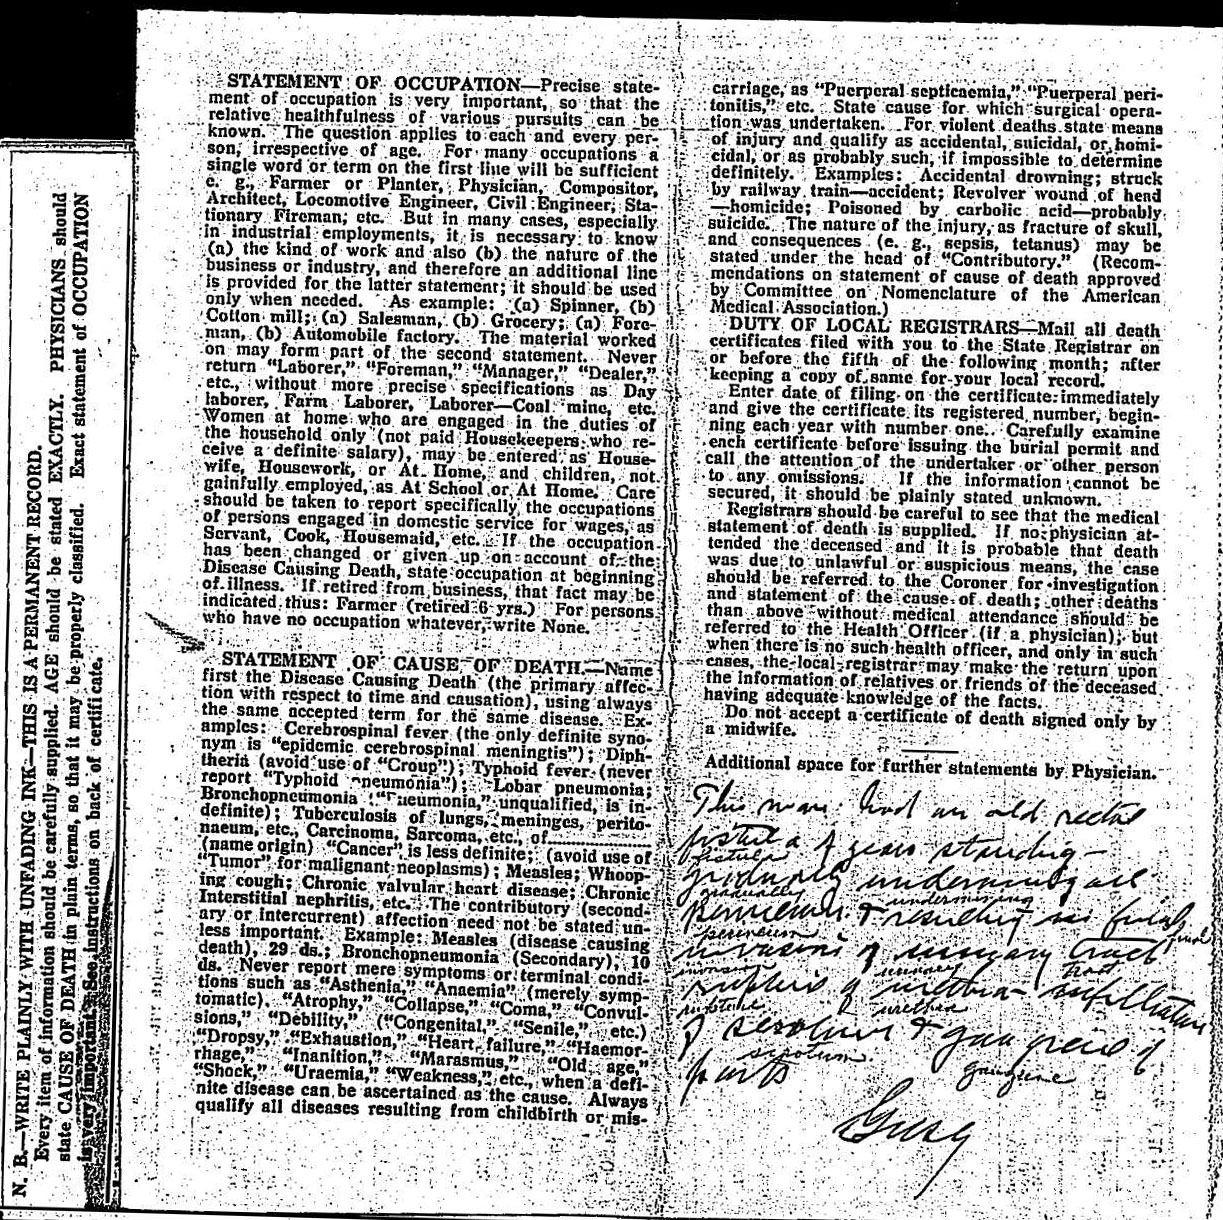 STATEMENT OF OCCUPATION—Precise state-
ment of occupation is very important, so that the
relative healthfulness of various pursuits can be
known. The question applies to each and every per-
son, irrespective of age. For many occupations a
single word or term on the first line will be sufficient
e. g., Farmer or Planter, Physician, Compositor,
Architect, Locomotive Engineer, Civil Engineer, Sta-
tionary Fireman, etc. But in many cases, especially
in industrial employments, it is necessary to know
(a) the kind of work and also (b) the nature of the
business or industry, and therefore an additional line
is provided for the latter statement; it should be used
only when needed. As example: (a) Spinner, (b)
Cotton mill; (a) Salesman, (b) Grocery; (a) Fore-
man, (b) Automobile factory. The material worked
on may form part of the second statement. Never
return "Laborer," "Foreman," "Manager," "Dealer,"
etc., without more precise specifications as Day
laborer, Farm Laborer, Laborer—Coal mine, etc.
Women at home who are engaged in the duties of
the household only (not paid Housekeepers who re-
ceive a definite salary), may be entered as House-
wife, Housework, or At Home, and children, not
gainfully employed, as At School or At Home. Care
should be taken to report specifically the occupations
of persons engaged in domestic service for wages, as
Servant, Cook, Housemaid, etc. If the occupation
has been changed or given up on account of the
Disease Causing Death, state occupation at beginning
of illness. If retired from business, that fact may be
indicated thus: Farmer (retired 6 yrs.) For persons
who have no occupation whatever, write None.
STATEMENT OF CAUSE OF DEATH.—Name
first the Disease Causing Death (the primary affec-
tion with respect to time and causation), using always
the same accepted term for the same disease. Ex-
amples: Cerebrospinal fever (the only definite syno-
nym is "epidemic cerebrospinal meningtis"); Diph-
theria (avoid use of "Croup"); Typhoid fever (never
report "Typhoid pneumonia"); Lobar pneumonia;
Bronchopneumonia ("Pneumonia," unqualified, is in-
definite); Tuberculosis of lungs, meninges, perito-
naeum, etc., Carcinoma, Sarcoma, etc., of..............
(name origin) "Cancer" is less definite; (avoid use of
"Tumor" for malignant neoplasms); Measles; Whoop-
ing cough; Chronic valvular heart disease; Chronic
Interstitial nephritis, etc. The contributory (second-
ary or intercurrent) affection need not be stated un-
less important. Example: Measles (disease causing
death), 29 ds.; Bronchopneumonia (Secondary), 10
ds. Never report mere symptoms or terminal condi-
tions such as "Asthenia," "Anaemia" (merely symp-
tomatic), "Atrophy," "Collapse," "Coma," "Convul-
sions," "Debility," ("Congenital," "Senile," etc.)
"Dropsy," "Exhaustion," "Heart failure," "Haemor-
rhage," "Inanition," "Marasmus," "Old age,"
"Shock," "Uraemia," "Weakness," etc., when a defi-
nite disease can be ascertained as the cause. Always
qualify all diseases resulting from childbirth or mis-
carriage, as "Puerperal septicaemia," "Puerperal peri-
tonitis," etc. State cause for which surgical opera-
tion was undertaken. For violent deaths state means
of injury and qualify as accidental, suicidal, or homi-
cidal, or as probably such, if impossible to determine
definitely. Examples: Accidental drowning; struck
by railway train—accident; Revolver wound of head
—homicide; Poisoned by carbolic acid—probably
suicide. The nature of the injury, as fracture of skull,
and consequences (e. g., sepsis, tetanus) may be
stated under the head of "Contributory." (Recom-
mendations on statement of cause of death approved
by Committee on Nomenclature of the American
Medical Association.)
DUTY OF LOCAL REGISTRARS—Mail all death
certificates filed with you to the State Registrar on
or before the fifth of the following month; after
keeping a copy of same for your local record.
Enter date of filing on the certificate immediately
and give the certificate its registered number, begin-
ning each year with number one. Carefully examine
each certificate before issuing the burial permit and
call the attention of the undertaker or other person
to any omissions. If the information cannot be
secured, it should be plainly stated unknown.
Registrars should be careful to see that the medical
statement of death is supplied. If no physician at-
tended the deceased and it is probable that death
was due to unlawful or suspicious means, the case
should be referred to the Coroner for investigation
and statement of the cause of death; other deaths
than above without medical attendance should be
referred to the Health Officer (if a physician); but
when there is no such health officer, and only in such
cases, the local registrar may make the return upon
the information of relatives or friends of the deceased
having adequate knowledge of the facts.
Do not accept a certificate of death signed only by
a midwife.
Additional space for further statements by Physician.
This man had an old rectal
fistula of years standing—
fistula
gradually undermining all
gradually undermining
perineum & resulting in final
perineum final
invasion of urinary tract
invasion urinary tract
rupture of urethra infiltration
rupture urethra
of scrotum & gangrene of
scrotum gangrene
parts
N. B.—WRITE PLAINLY WITH UNFADING INK—THIS IS A PERMANENT RECORD.
Every item of information should be carefully supplied. AGE should be stated EXACTLY. PHYSICIANS should
state CAUSE OF DEATH in plain terms, so that it may be properly classified. Exact statement of OCCUPATION
is very important. See instructions on back of certificate.